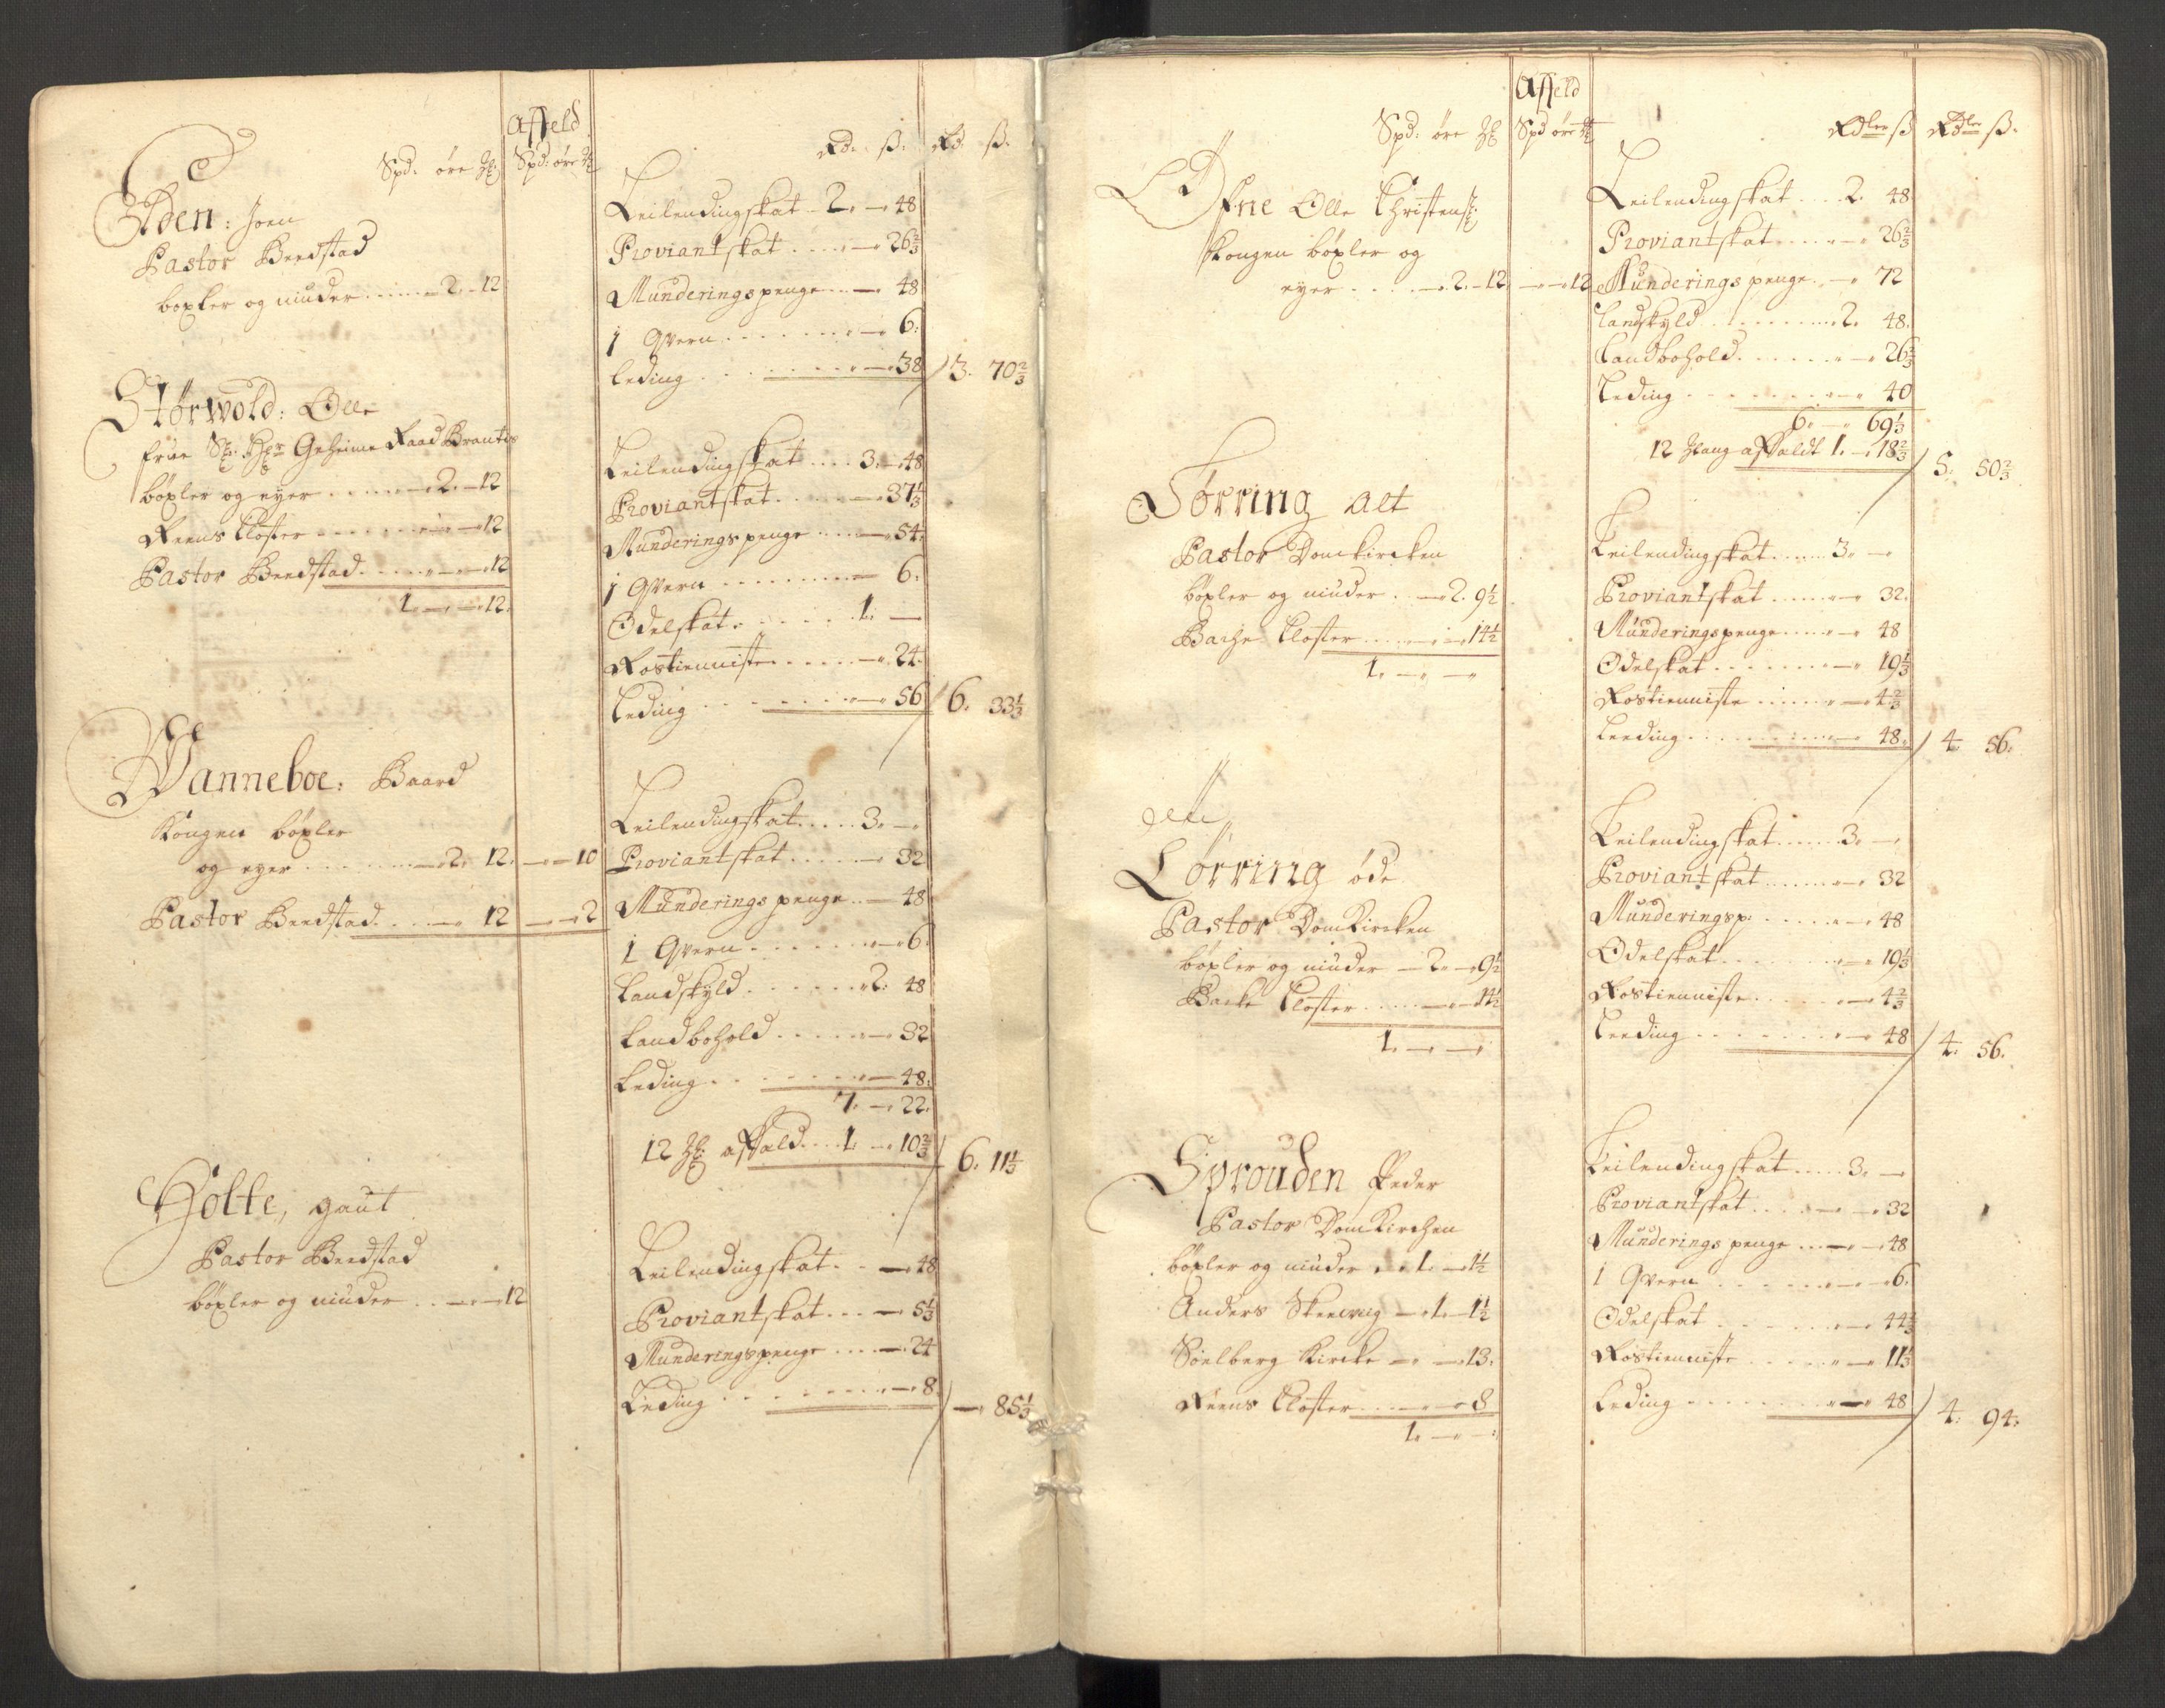 Affeld
Spd: øre Spd: øre Rd: ß: Rd ß.
Elden: Joen
Pastor Beedstad
boxler og niuder 2. 12
Leilendingskat 2. 48
Proviantskat 26 2/3
Munderingspenge 48
1 Qvern 6:
leding 38 3. 70 2/3
Størwold: Olle
frue Geheime Raad Brants
bøxler og eyer 2. 12
Reens Closter 12
Pastor Beedstad 12
1. 12.
Leilendingskat 3. 48
Proviantskat 37 1/3
Munderingspenge 54.
1 Qvern 6:
Odelskat 1.
Rostienniste 24.
Leding 56 6. 33 1/3
Wanneboe: Baard
Kongen bøxler
og eyer 2. 12. 10
Pastor Beedstad 12 2
Leilendingskat 3.
Proviantskat 32
Munderings penge 48
1 Qvern 6
Landskyld 2. 48
Landbohold 32
Leding 48.
7. 22.
12 affald 1. 10 2/3 6. 11 1/3
Holte, gaut
Pastor Beedstad
bøxler og niuder 12
Leilendingskat 48
Proviantskat 5 1/3
Munderingspenge 24
Leding 8. 85 1/3
Affeld
Spd: øre Spd øre Rdler ß Rdler ß.
Øfne Olle Christens:
Kongen bøxler og
eyer 2. 12 12
Leilendingskat 2. 48
Proviantskat 26 2/3
Munderings penge 72
Landskyld 2. 48.
Landbohold 26 2/3
Leding 40
6. 69 1/3
12 affaldt 1. 18 2/3 5. 50 2/3
Tørring alt
Pastor Domkircken
bøxler og niuder 2. 9 1/2
Bache Closter 14 1/2
1.
Leilendingskat 3.
Proviantskat 32.
Munderingspenge 48
Odelskat 19 1/3
Rostienniste 4 2/3
Leeding 48. 4. 56.
Tørring øde
Pastor Domkircken
bøxler og niuder 2. 9 1/2
Backe Closter 14 1/2
1.
Leilendingskat 3.
Proviantskat 32
Munderingsp: 48
Odelskat 19 1/3
Rostienniste 4 2/3
Leeding 48 4. 56.
Sprouden Peder
Pastor Domkirchen
bøxler og niuder 1. 1 1/2
Anders Skeevig 1. 1 1/2
Søelberg Kircke 13.
Reens Closter 8
1.
Leilendingskat 3.
Proviantskat 32
Munderings penge 48
1 Qvern 6.
Odelskat 44 2/3
Rostienniste 11 1/3
Leding 48 4. 94.